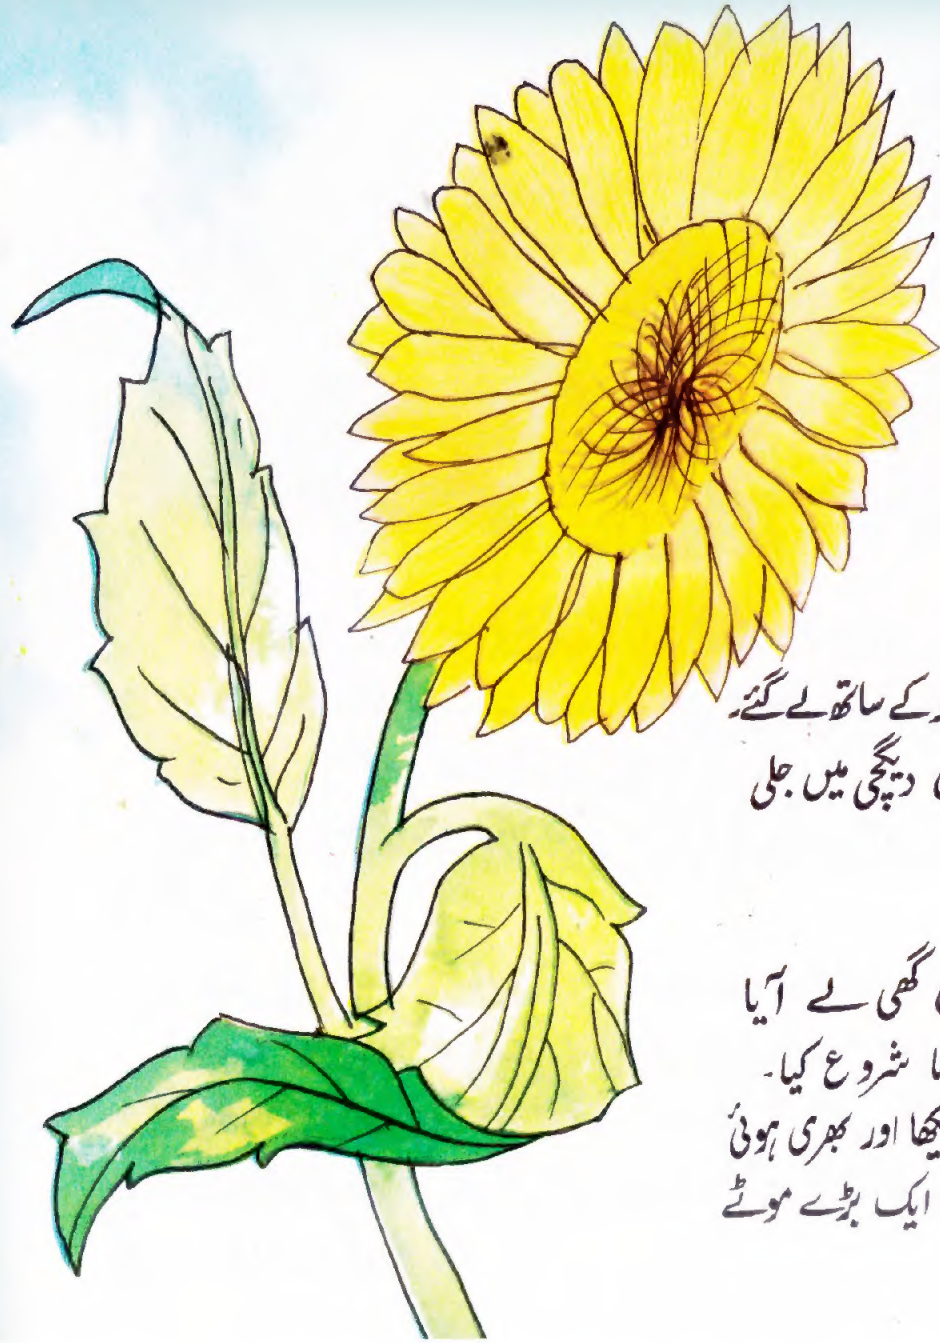 کے ساتھ لے گئے۔
دیگچی میں جلی
گھی لے آیا
شروع کیا۔
اور بھری ہوئی
ایک بڑے موٹے